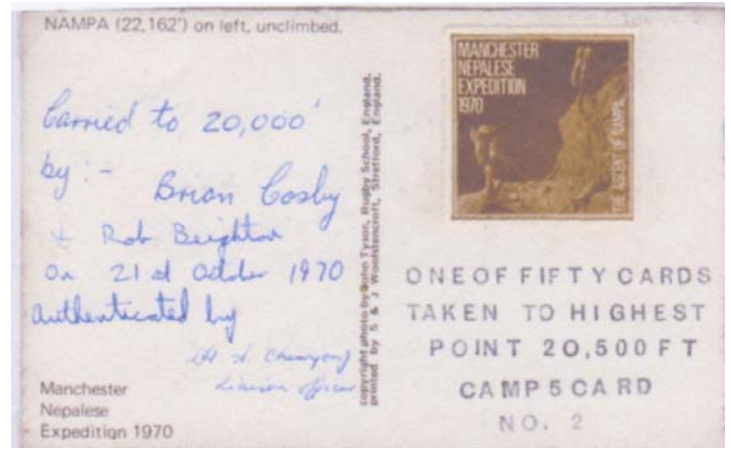 NAMPA (22,162') on left, unclimbed.
Carried to 20,000'
by :- Brian Cosby
+ Rob Beighton
on 21st October 1970
Authenticated by
Liaison Officer
Manchester
Nepalese
Expedition 1970
copyright photo by John Tyson, Rugby School, England.
printed by S & J Woolstencroft, Stretford, England.
MANCHESTER
NEPALESE
EXPEDITION
1970
THE ASCENT OF NAMPA
ONE OF FIFTY CARDS
TAKEN TO HIGHEST
POINT 20,500 FT
CAMP 5 CARD
NO. 2